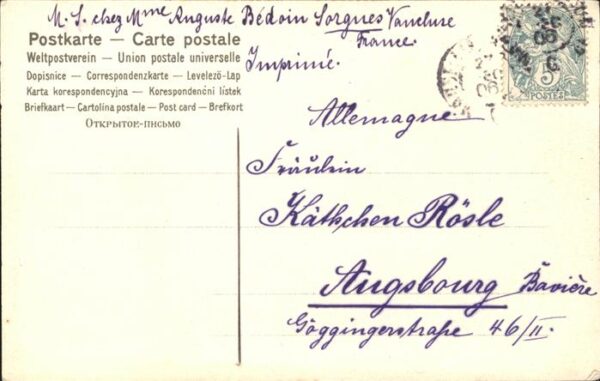 M. S. chez Mme Auguste Bédoin Sorgues Vaucluse
France.
Imprimé.
Postkarte — Carte postale
Weltpostverein — Union postale universelle
Dopisnice — Correspondenzkarte — Levelező-Lap
Karta korespondencyjna — Korespondenčni listek
Briefkaart — Cartolina postale — Post card — Brefkort
Открытое-письмо
5
POSTES
Allemagne
Fräulein
Käthchen Rösle
Augsbourg Bavière
Göggingerstraße 46/II.